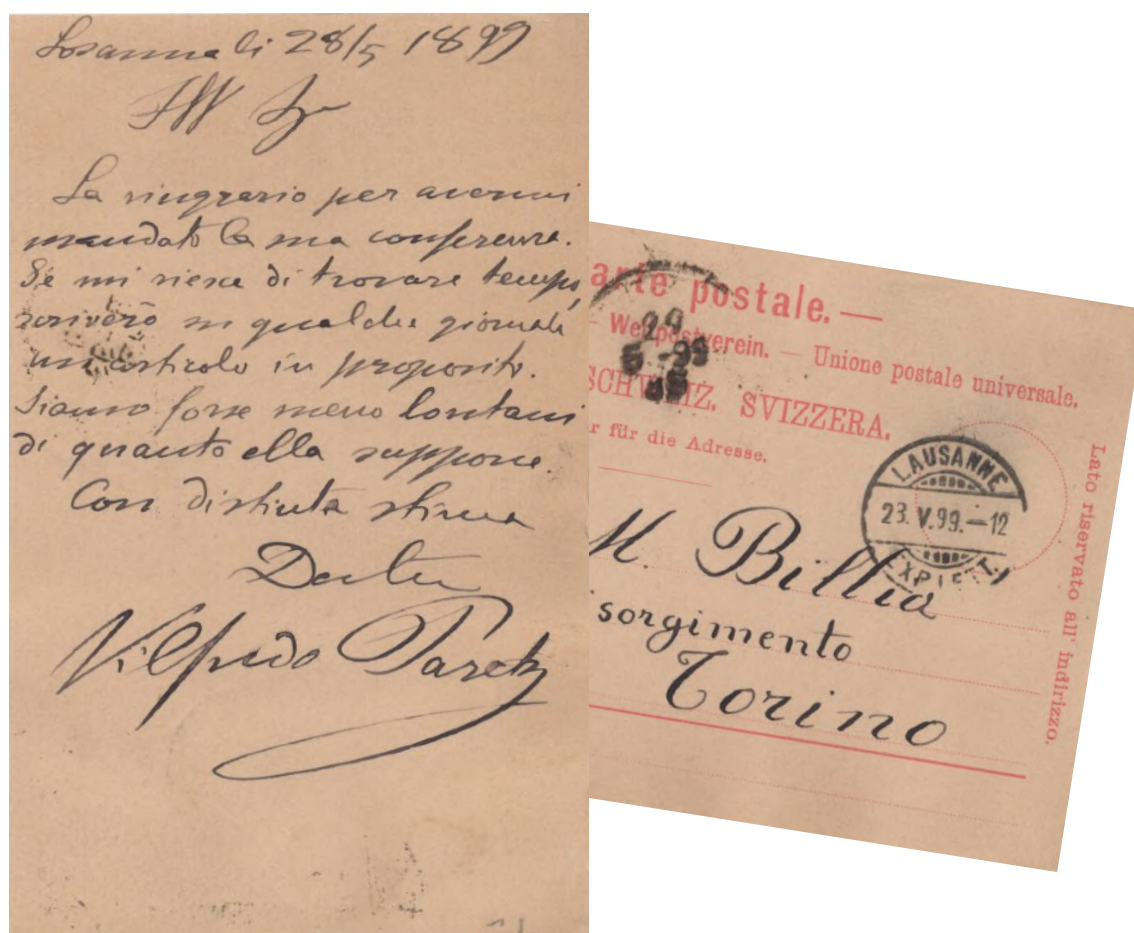 Losanna li 28/5 1899
Ill Sigr
La ringrazio per avermi
mandato la sua conferenza.
Se mi riesce di trovare tempo,
scriverò in qualche giornale
un articolo in proposito.
Siamo forse meno lontani
di quanto ella suppone.
Con distinta stima
Vilfredo Pareto
arte postale.—
— Weltpostverein. — Unione postale universale.
SCHWEIZ. SVIZZERA.
r für die Adresse.
Lato riservato all' indirizzo.
LAUSANNE
23.V.99.—12
M. Billia
sorgimento
Torino